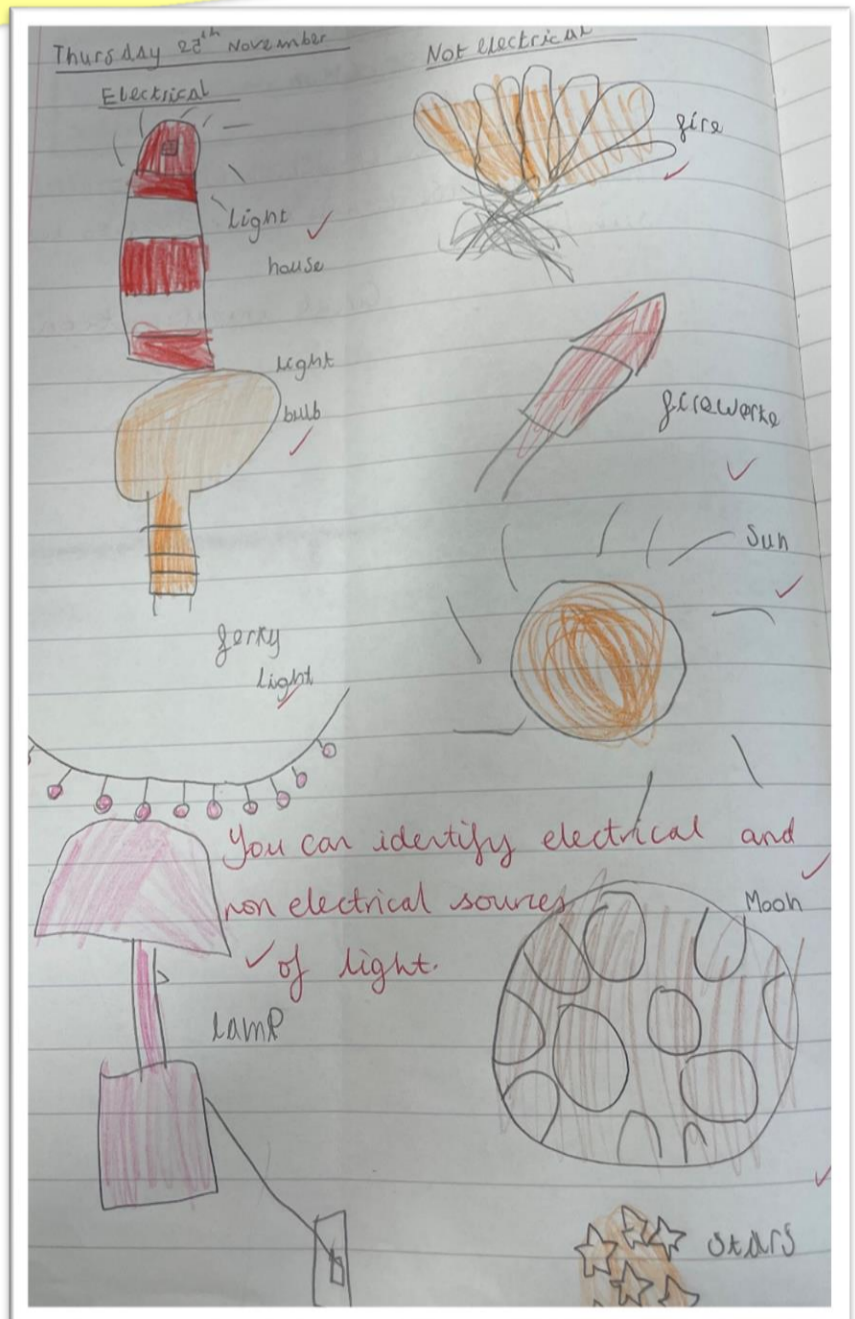 Thursday 27th November
Electrical
Light
house
Light
bulb
ferky
Light
lamp
Not electrical
fire
firewerke
Sun
Moon
stars
You can identify electrical and
non electrical sources
of light.